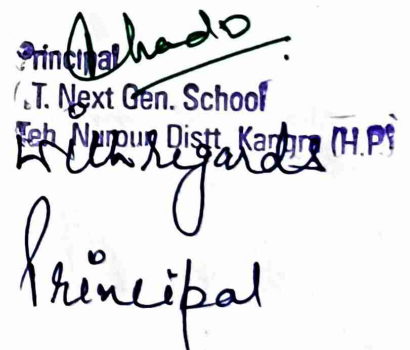 Principal
.T. Next Gen. School
Teh. Nurpur Distt. Kangra (H.P)
With regards
Principal